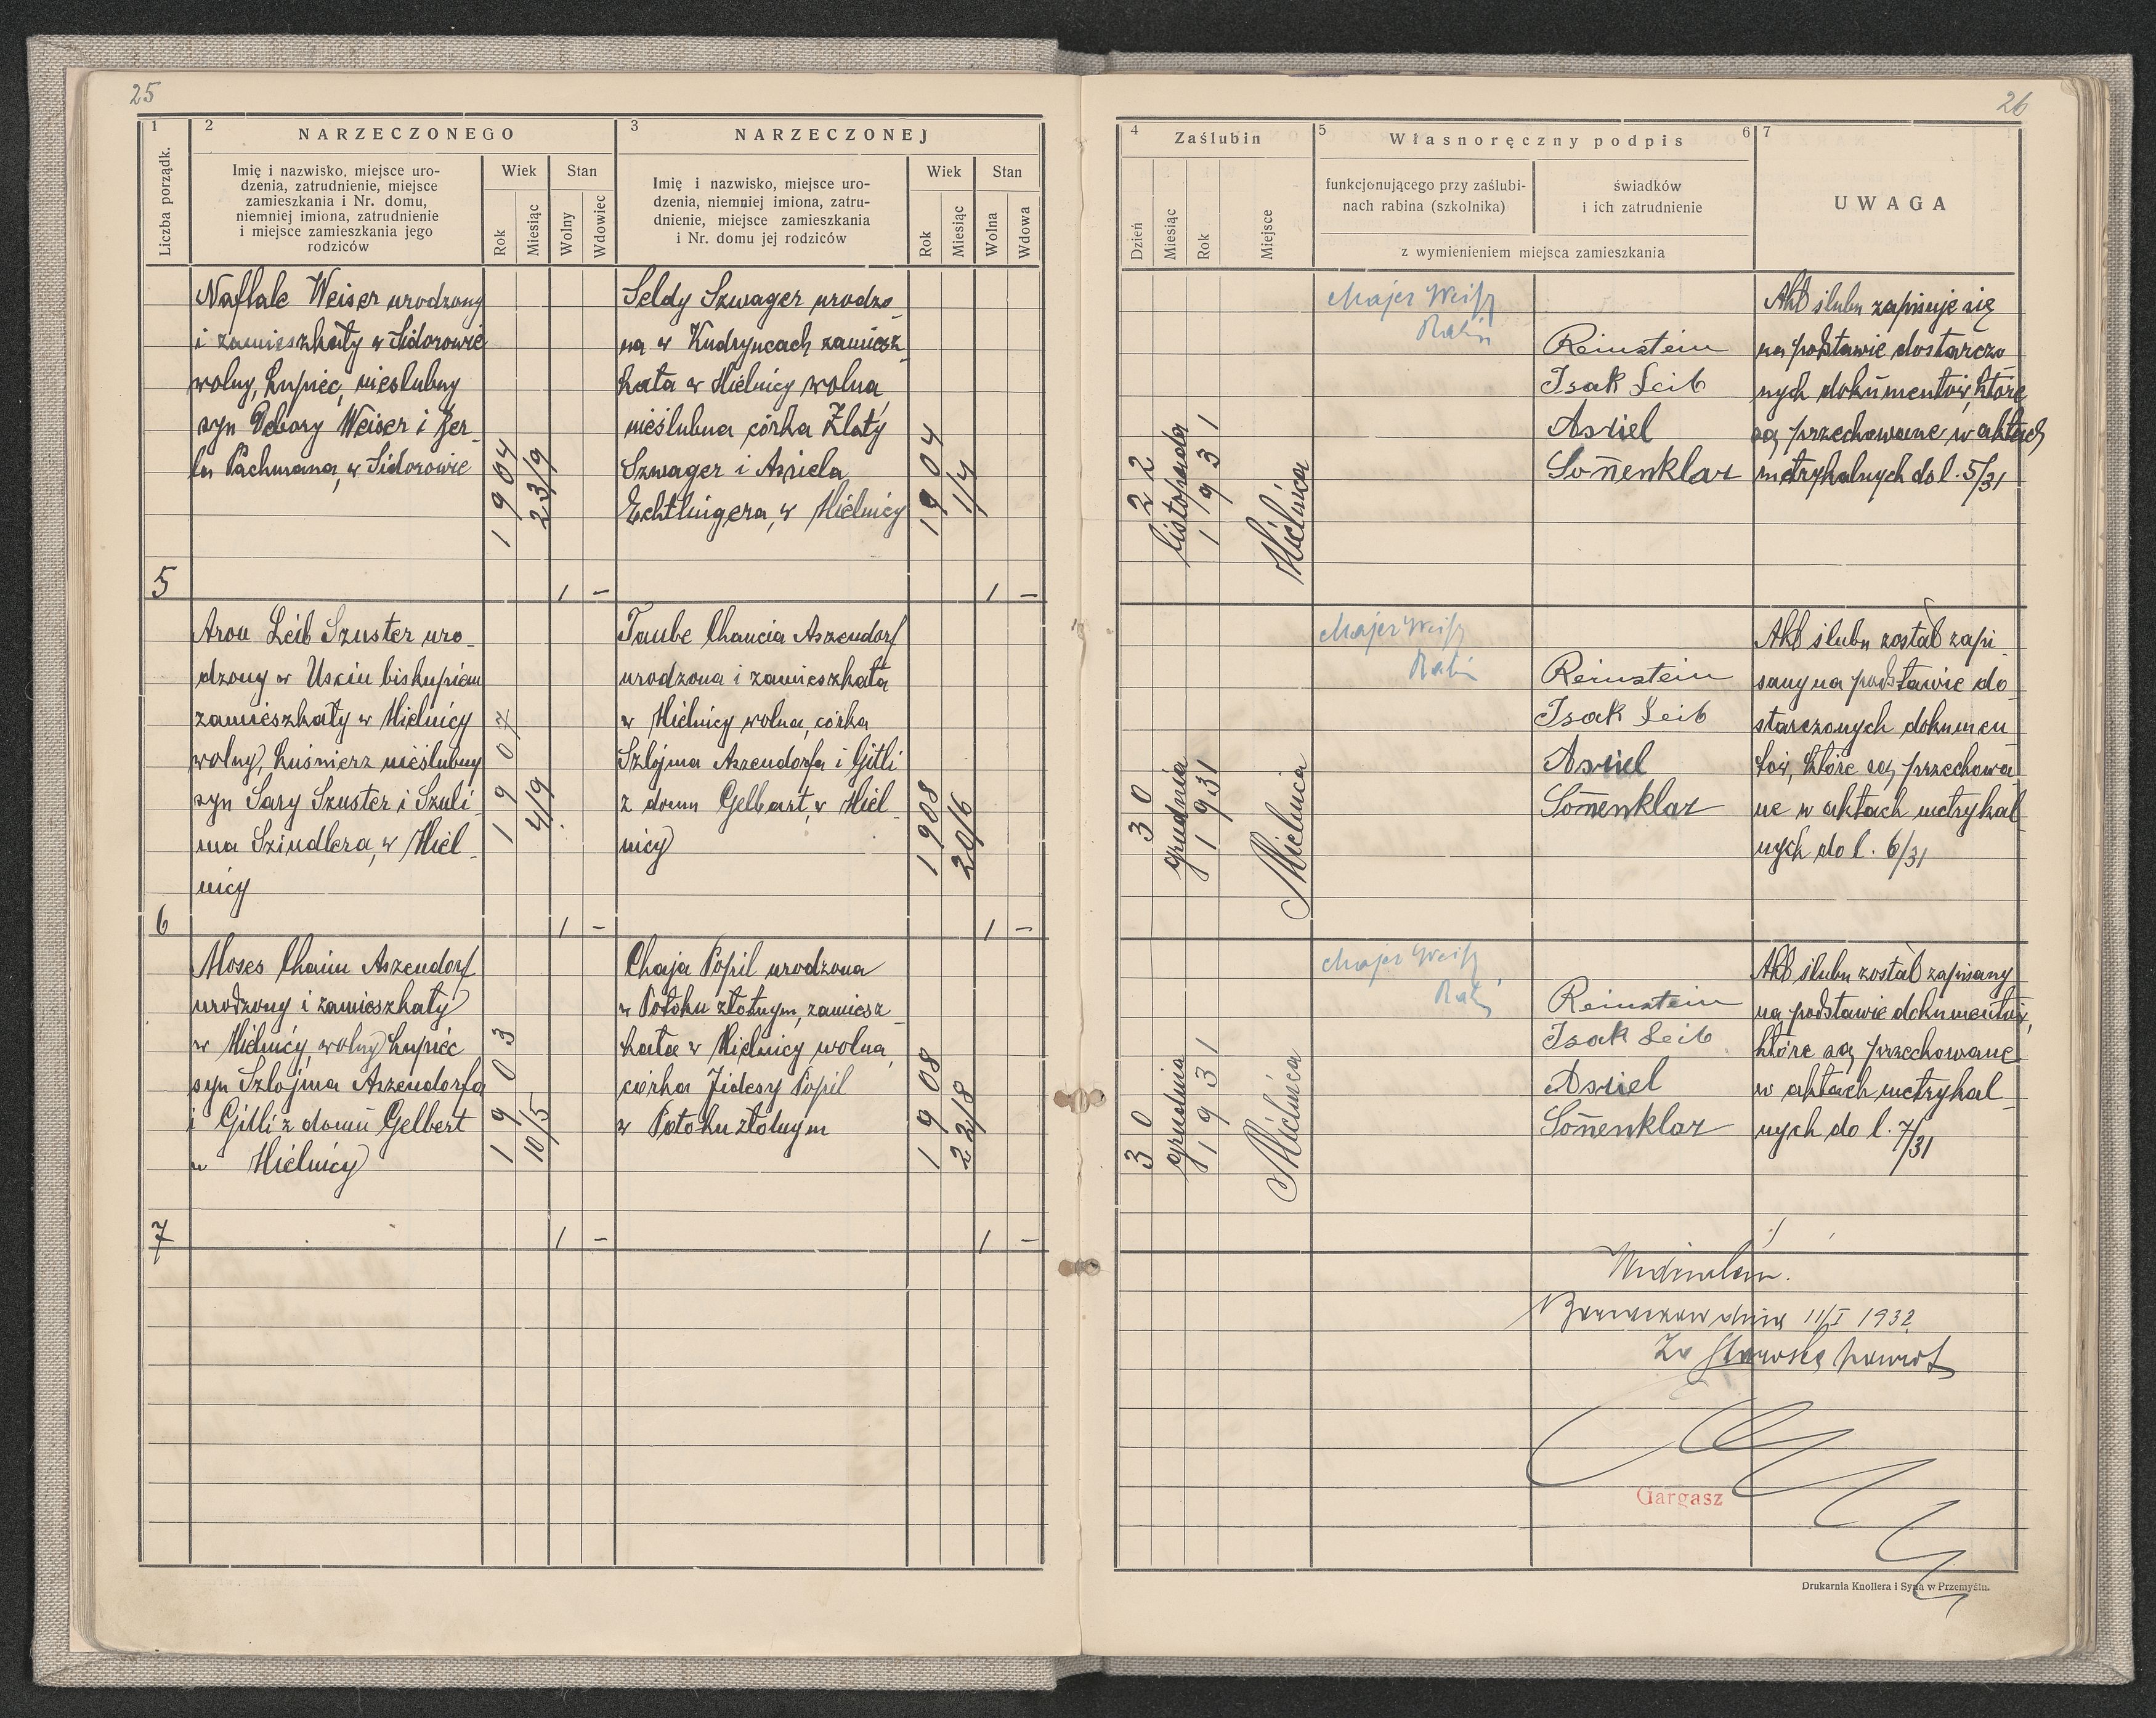 25
1
2
NARZECZONEGO
3
NARZECZONEJ
Liczba porządk.
Imię i nazwisko, miejsce uro-
dzenia, zatrudnienie, miejsce
zamieszkania i Nr. domu,
niemniej imiona, zatrudnienie
i miejsce zamieszkania jego
rodziców
Wiek
Stan
Rok
Miesiąc
Wolny
Wdowiec
Imię i nazwisko, miejsce uro-
dzenia, niemniej imiona, zatru-
dnienie, miejsce zamieszkania
i Nr. domu jej rodziców
Wiek
Stan
Rok
Miesiąc
Wolna
Wdowa
Naftale Weiser urodzony
i zamieszkały w Sidorowie
wolny, kupiec, nieślubny
syn Debory Weiser i Ber-
la Pachmana, w Sidorowie
1904
23/9
1 –
Seldy Szwager urodzo
na w Kudryncach zamiesz-
kała w Mielnicy wolna
nieślubna córka Złaty
Szwager i Asriela
Echtlingera, w Mielnicy
1904
1/4
1 –
5
Aron Leib Szuster uro-
dzony w Uściu biskupiem
zamieszkały w Mielnicy
wolny, kuśnierz nieślubny
syn Sary Szuster i Szuli
ma Szindlera, w Miel-
nicy
1907
4/9
1 –
Taube Chancia Aszendorf
urodzona i zamieszkała
w Mielnicy wolna, córka
Szlojma Aszendorfa i Gitli
z domu Gelbart, w Miel-
nicy
1908
20/6
1 –
6
Moses Chaim Aszendorf
urodzony i zamieszkały
w Mielnicy, wolny kupiec
syn Szlojma Aszendorfa
i Gitli z domu Gelbert
w Mielnicy
1903
10/5
1 –
Chaja Popil urodzona
w Potoku złotym, zamiesz-
kała w Mielnicy wolna,
córka Jidesy Popil
w Potoku złotym
1908
22/8
1 –
7
26
4
Zaślubin
5
Własnoręczny podpis
6
7
Dzień
Miesiąc
Rok
Miejsce
funkcjonującego przy zaślubi-
nach rabina (szkolnika)
świadków
i ich zatrudnienie
z wymienieniem miejsca zamieszkania
UWAGA
22
listopada
1931
Mielnica
Majer Weiß
Rabin
Reinstein
Isak Leib
Asriel
Sonenklar
Akt ślubu zapisuje się
na podstawie dostarczo
nych dokumentów, które
są przechowane w aktach
metrykalnych do l. 5/31
30
grudnia
1931
Mielnica
Majer Weiß
Rabin
Reinstein
Isak Leib
Asriel
Sonenklar
Akt ślubu został zapi-
sany na podstawie do-
starczonych dokumen
tów, które są przechowa-
ne w aktach metrykal-
nych do l. 6/31
30
grudnia
1931
Mielnica
Majer Weiß
Rabin
Reinstein
Isak Leib
Asriel
Sonenklar
Akt ślubu został zapisany
na podstawie dokumentów,
które są przechowane
w aktach metrykal-
nych do l. 7/31
Widziałem.
dnia 11/I 1932
Za Starostę powiat
Gargasz
Drukarnia Knollera i Syna w Przemyślu.